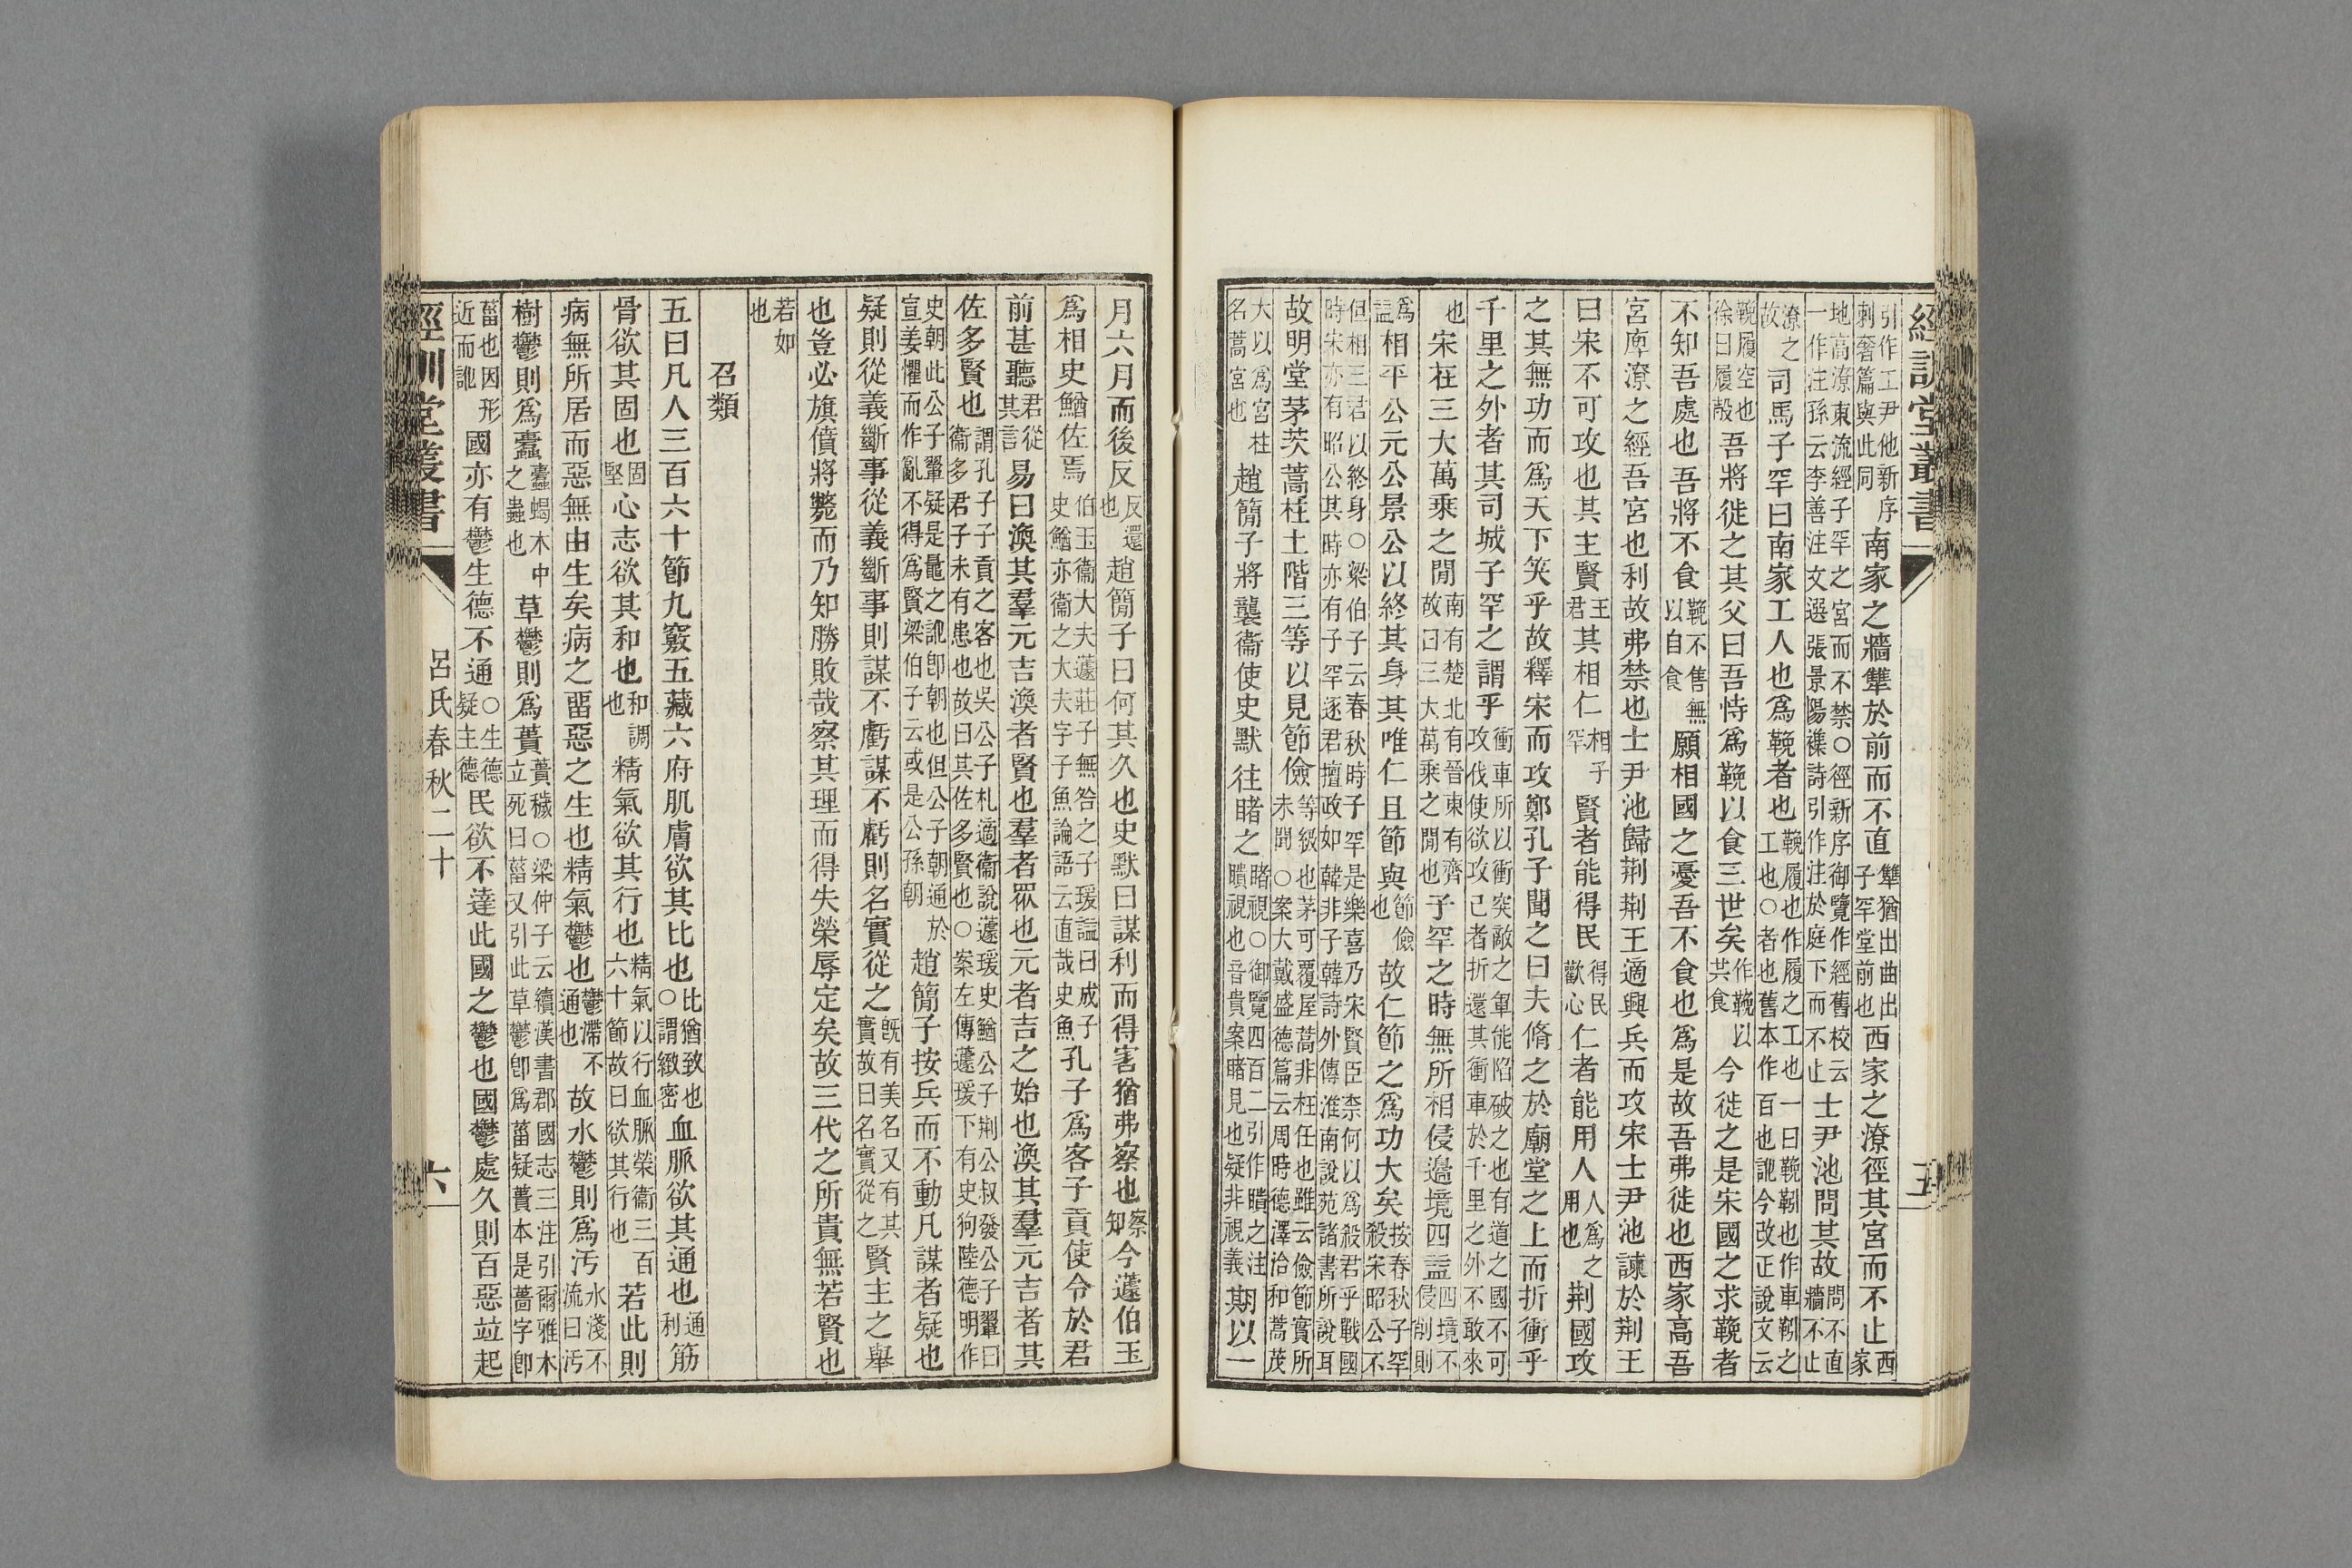 經訓堂叢書
五
引作工尹他新序
刺奢篇與此同
南家之牆犨於前而不直
犨猶出曲出
子罕堂前也
西家之潦徑其宮而不止
西
家
地高潦東流經子罕之宮而不禁○徑新序御覽作經舊校云
一作注孫云李善注文選張景陽襍詩引作注於庭下而不止
士尹池問其故
問不直
牆不止
潦之
故
司馬子罕曰南家工人也爲鞔者也
鞔履也作履之工也一曰鞔靷也作車靷之
工也○者也舊本作百也訛今改正說文云
鞔履空也
徐曰履殻
吾將徙之其父曰吾恃爲鞔以食三世矣
作鞔以
共食
今徙之是宋國之求鞔者
不知吾處也吾將不食
鞔不售無
以自食
願相國之憂吾不食也爲是故吾弗徙也西家高吾
宮庳潦之經吾宮也利故弗禁也士尹池歸荆荆王適興兵而攻宋士尹池諫於荆王
曰宋不可攻也其主賢
王
君
其相仁
相子
罕
賢者能得民
得民
歡心
仁者能用人
人爲之
用也
荆國攻
之其無功而爲天下笑乎故釋宋而攻鄭孔子聞之曰夫脩之於廟堂之上而折衝乎
千里之外者其司城子罕之謂乎
衝車所以衝突敵之軍能陷破之也有道之國不可
攻伐使欲攻己者折還其衝車於千里之外不敢來
也
宋在三大萬乘之閒
南有楚北有晉東有齊
故曰三大萬乘之閒也
子罕之時無所相侵邉境四益
四境不
侵削則
爲
諡
相平公元公景公以終其身其唯仁且節與
節儉
也
故仁節之爲功大矣
按春秋子罕
殺宋昭公不
但相三君以終身○梁伯子云春秋時子罕是樂喜乃宋賢臣柰何以爲殺君乎戰國
時宋亦有昭公其時亦有子罕逐君擅政如韓非子韓詩外傳淮南說苑諸書所說耳
故明堂茅茨蒿柱土階三等以見節儉
等級也茅可覆屋蒿非柱任也雖云儉節實所
未聞○案大戴盛德篇云周時德澤洽和蒿茂
大以爲宮柱
名蒿宮也
趙簡子將襲衞使史默往睹之
睹視○御覽四百二引作䞈之注
䞈視也音貴案睹見也疑非視義
期以一
月六月而後反
反還
也
趙簡子曰何其久也史默曰謀利而得害猶弗察也
察
知
今蘧伯玉
爲相史鰌佐焉
伯玉衞大夫蘧莊子無咎之子瑗諡曰成子
史鰌亦衞之大夫字子魚論語云直哉史魚
孔子爲客子貢使令於君
前甚聽
君從
其言
易曰渙其羣元吉渙者賢也羣者眾也元者吉之始也渙其羣元吉者其
佐多賢也
謂孔子子貢之客也吳公子札適衞說蘧瑗史鰌公子荆公叔發公子鼂曰
衞多君子未有患也故曰其佐多賢也○案左傳蘧瑗下有史狗陸德明作
史朝此公子鼂疑是鼂之訛卽朝也但公子朝通於
宣姜懼而作亂不得爲賢梁伯子云或是公孫朝
趙簡子按兵而不動凡謀者疑也
疑則從義斷事從義斷事則謀不虧謀不虧則名實從之
旣有美名又有其
實故曰名實從之
賢主之舉
也豈必旗僨將斃而乃知勝敗哉察其理而得失榮辱定矣故三代之所貴無若賢也
若如
也
召類
五曰凡人三百六十節九竅五藏六府肌膚欲其比也
比猶致也
○謂緻密
血脈欲其通也
通
利
筋
骨欲其固也
固
堅
心志欲其和也
和調
也
精氣欲其行也
精氣以行血脈榮衞三百
六十節故曰欲其行也
若此則
病無所居而惡無由生矣病之畱惡之生也精氣鬱也
鬱滯不
通也
故水鬱則爲汚
水淺不
流曰汚
樹鬱則爲蠹
蠹蝎木中
之蟲也
草鬱則爲蕢
蕢穢○梁仲子云續漢書郡國志三注引爾雅木
立死曰菑又引此草鬱卽爲菑疑蕢本是薔字卽
菑也因形
近而訛
國亦有鬱生德不通
○生德
疑主德
民欲不達此國之鬱也國鬱處久則百惡竝起
經訓堂叢書
呂氏春秋二十
六